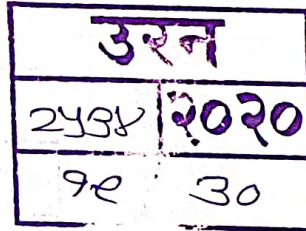 उरन
२५३४ २०२०
१९ ३०